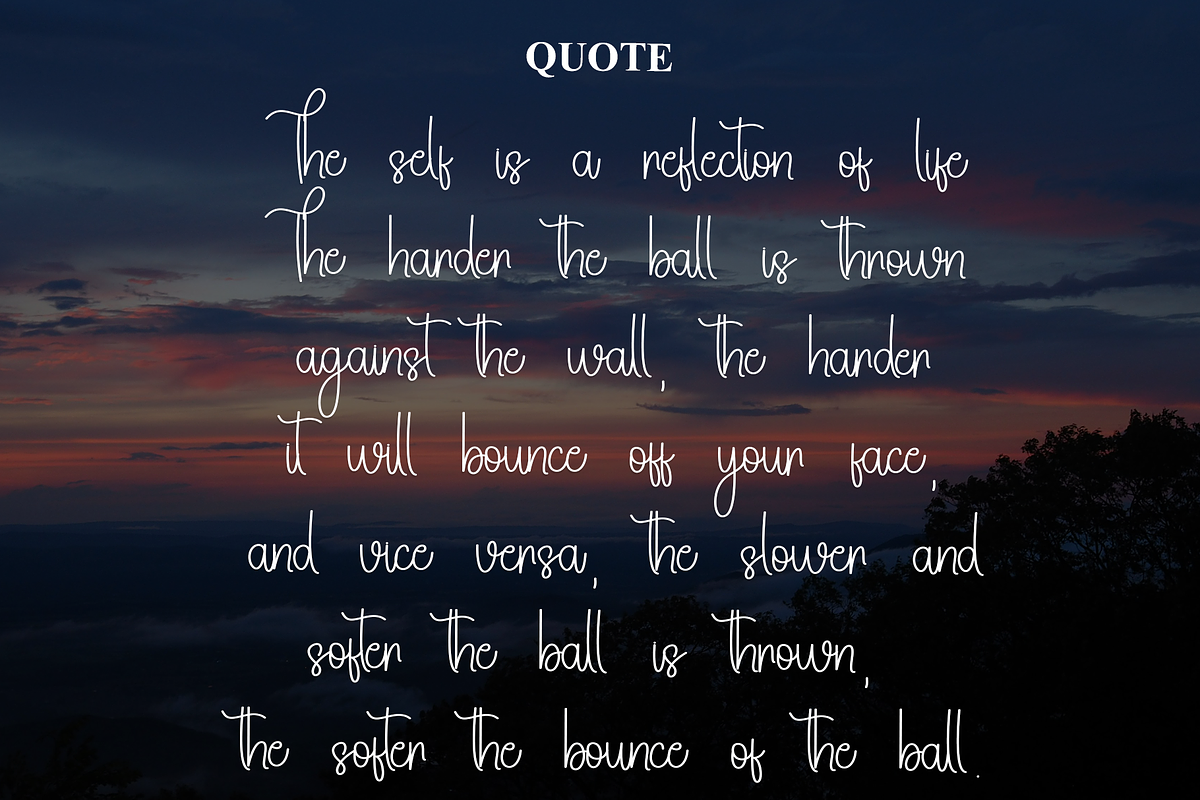 QUOTE
The self is a reflection of life
The harder the ball is thrown
against the wall, the harder
it will bounce off your face,
and vice versa, the slower and
softer the ball is thrown,
the softer the bounce of the ball.